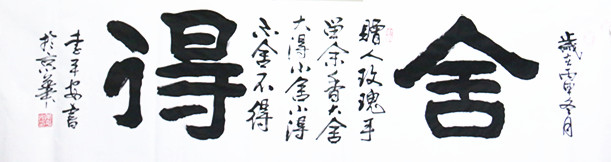 岁在丙申冬月
舍
赠人玫瑰手
留余香大舍
大得小舍小得
不舍不得
得
李平安书
于京华